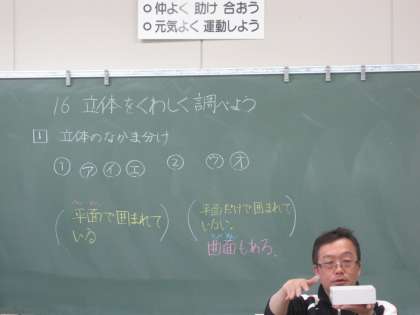 ○仲よく 助け 合おう
○元気よく 運動しよう
16 立体をくわしく調べよう
1 立体のなかま分け
① ㋐ ㋑ ㋓ ② ㋒ ㋔
(平面で囲まれて
いる)
(平面だけで囲まれて
いない。
曲面もある。)